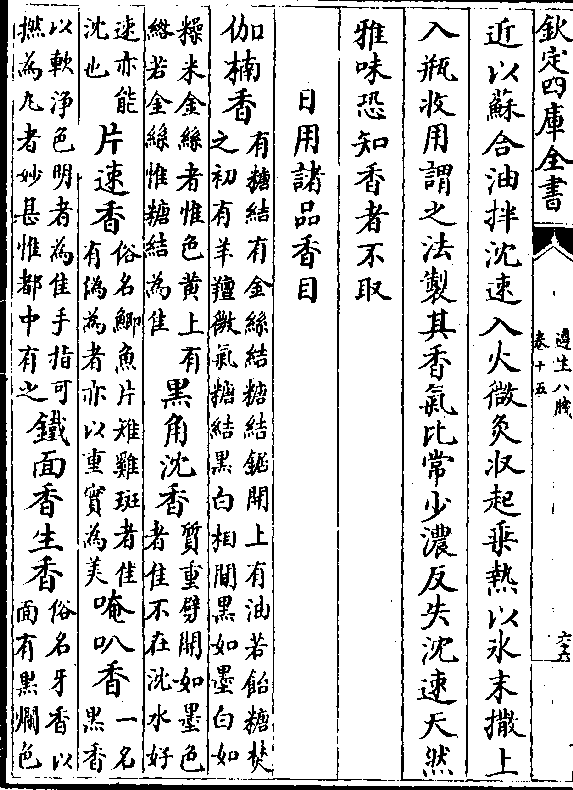 欽定四庫全書
遵生八牋
卷十五
六六
近以蘇合油拌沈速入火微炙收起乗熱以氷末撒上
入瓶收用謂之法製其香氣比常少濃反失沈速天然
雅味恐知香者不取
日用諸品香目
伽楠香
有糖結有金絲結糖結鋸開上有油若飴糖焚
之初有羊羶微氣糖結黒白相間黒如墨白如
糙米金絲者惟色黄上有
綹若金絲惟糖結為佳
黒角沈香
質重劈開如墨色
者佳不在沈水好
速亦能
沈也
片速香
俗名鯽魚片雉雞斑者佳
有偽為者亦以重實為美
唵叭香
一名
黒香
以軟浄色明者為佳手指可
撚為丸者妙甚惟都中有之
鐵面香生香
俗名牙香以
面有黒爛色